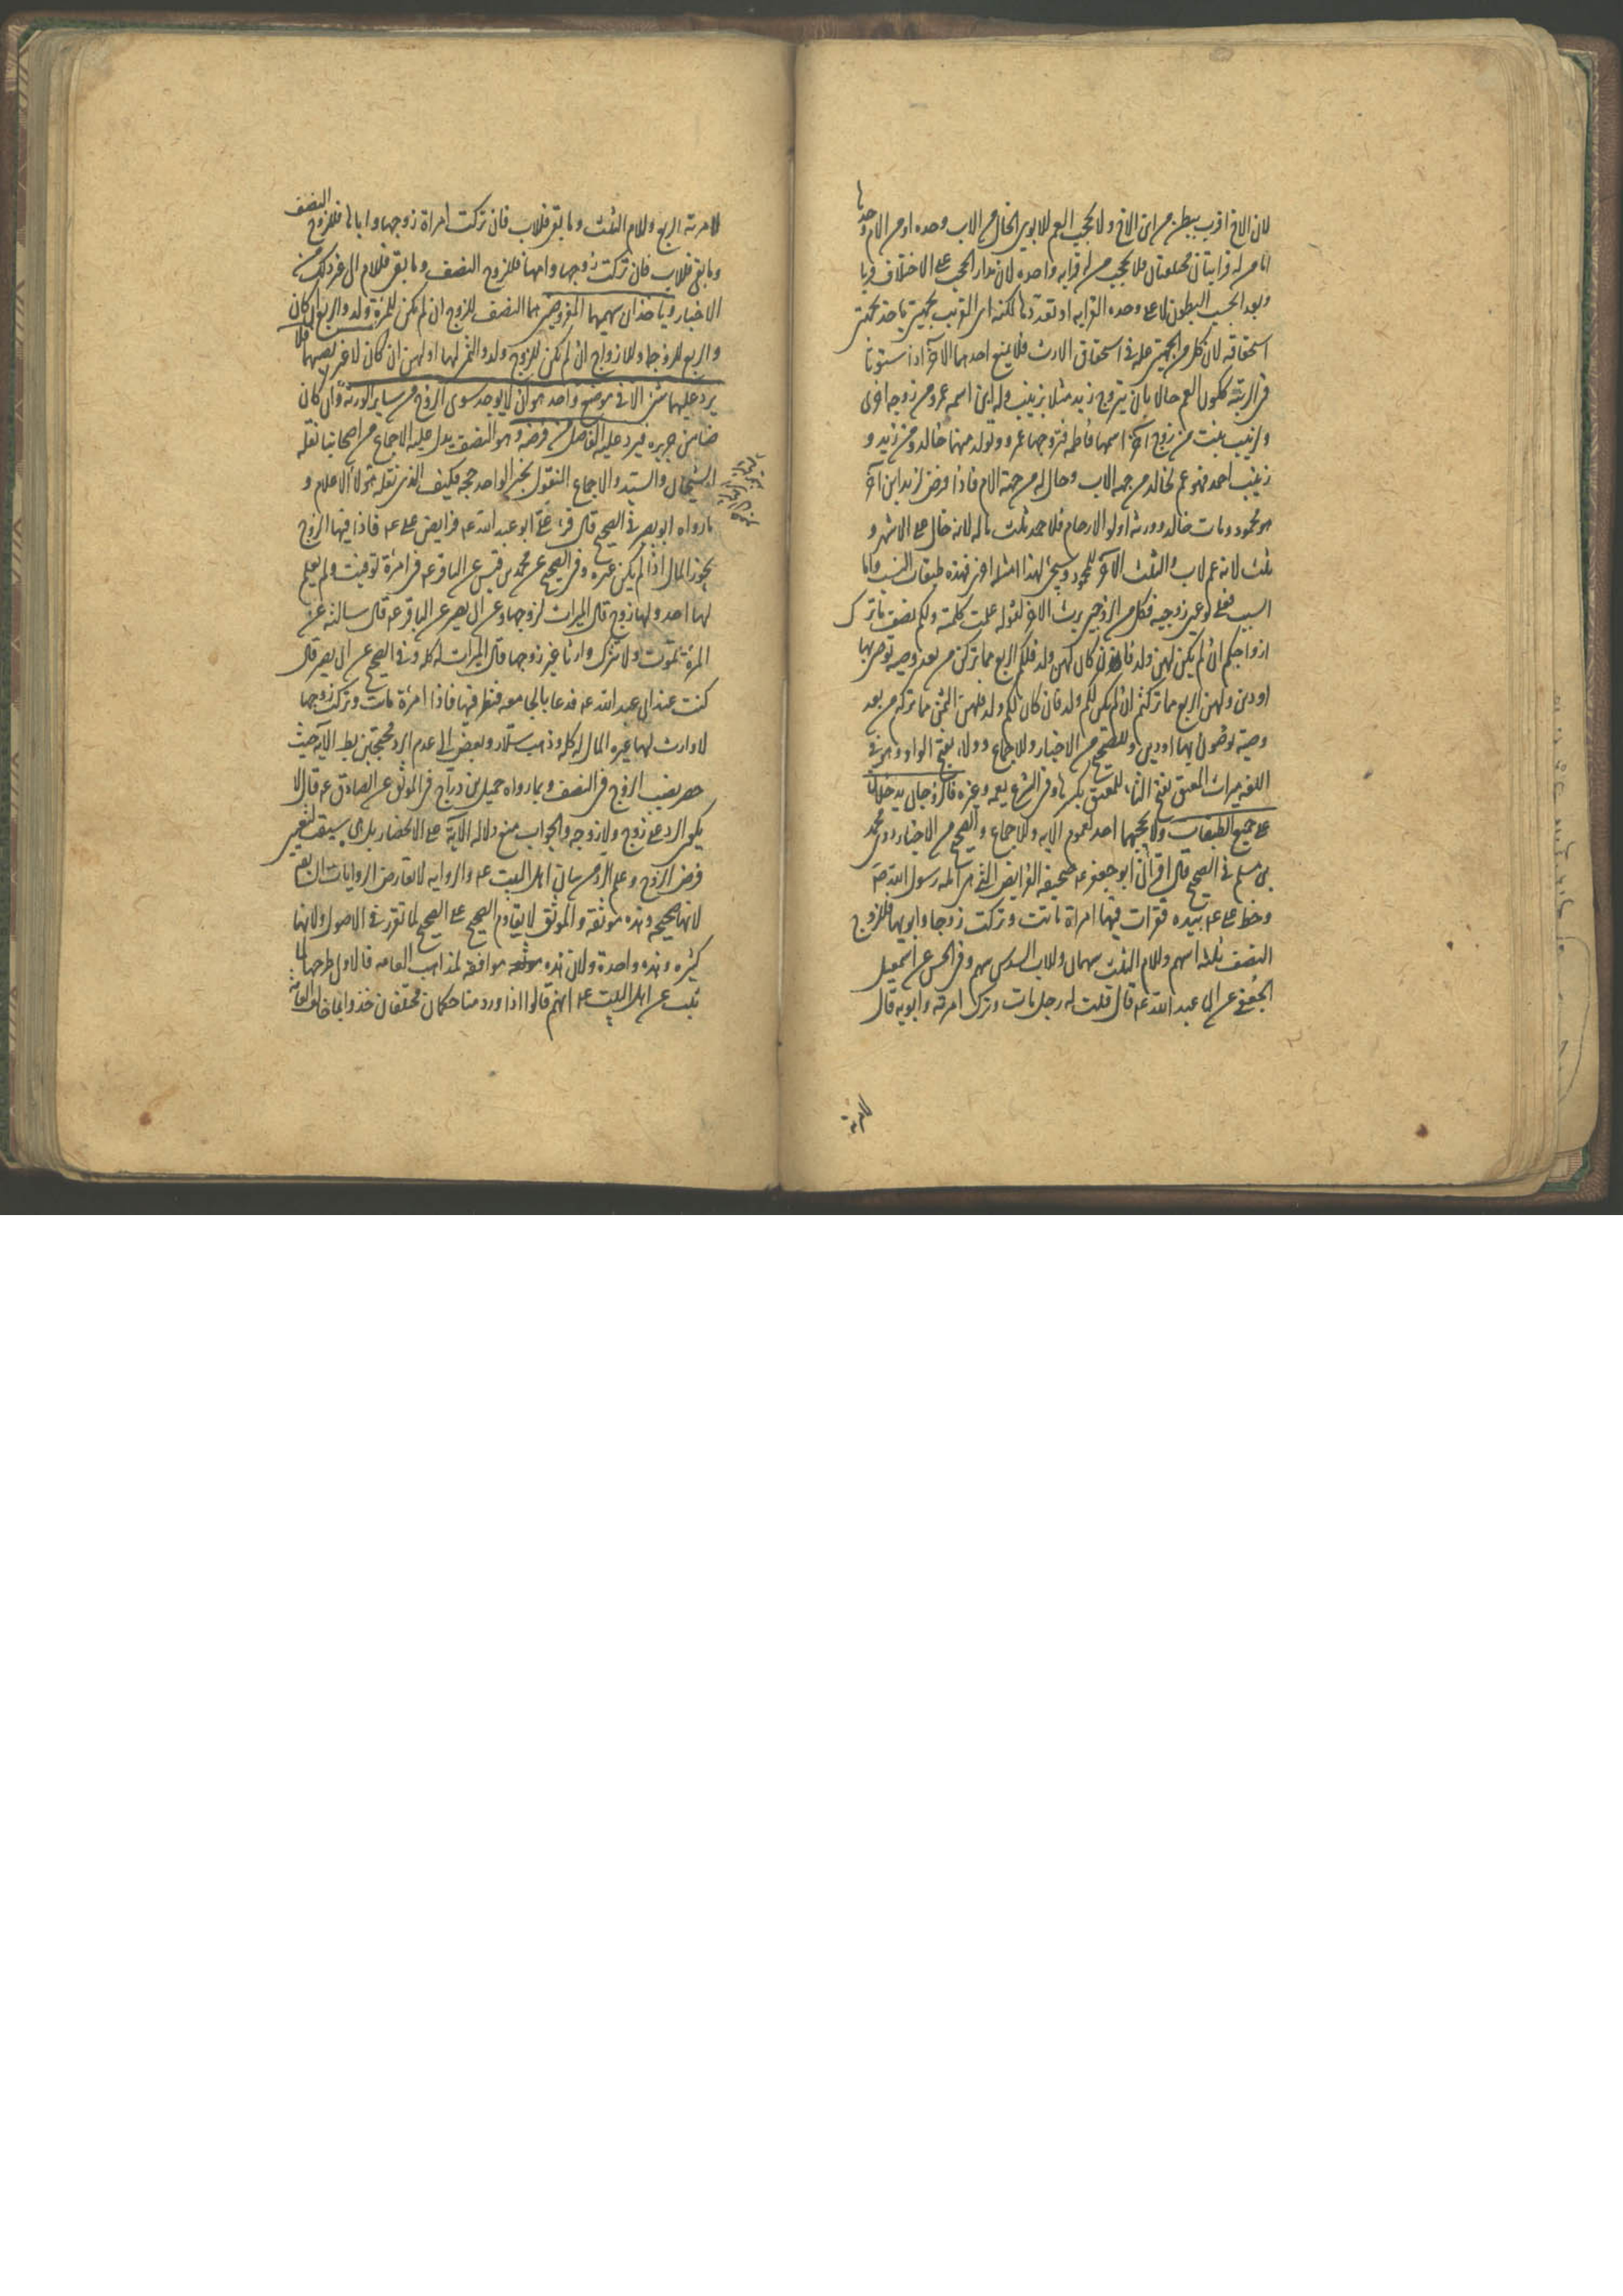 لان الاخ اقرب ببطن من ابن الاخ ولا يحجب العم للابوين الخال من الاب وحده او من الام وحدها
اما من له قرابتان مختلفتان فلا يحجب من له قرابه واحده لان مدار الحجب على الاختلاف قربا
وبعدا بحسب البطون لا على وحده القرابه او تعددها لكنه اى القريب بجهتين ياخذ بجهتى
استحقاقه لان كل من الجهتين عله فى استحقاق الارث فلا يمنع احدهما الآخر اذا ستوتا
فى الرتبة ككون العم خالا بان يتزوج زيد مثلا بزينب وله ابن اسمه عمرو من زوجه اخرى
ولزينب بنت من زوج آخر اسمها فاطمه فتزوجها عمرو وتولد منهما خالد ومن زيد و
زينب احمد فهو عم لخالد من جهه الاب وخال له من جهة الام فاذا فرض لزيد ابن آخر
هو محمود ومات خالد وورثه اولو الارحام فلاحمد ثلث ماله لانه خال على الاشهر و
ثلث لانه عم لاب والثلث الآخر لمحمود وسيجئ لهذا امثله اخر فهذه طبقات النسب واما
السبب فعلى نوعين زوجيه فكل من الزوجين يرث الاخر لقوله علت كلمته ولكم نصف ما ترك
ازواجكم ان لم يكن لهن ولد فان كان لهن ولد فلكم الربع مما تركن من بعد وصيه توصى بها
او دين ولهن الربع مما تركتم ان لم يكن لكم ولد فان كان لكم ولد فلهن الثمن مما تركتم من بعد
وصيه توصون بها او دين وللصحيح من الاخبار وللاجماع وولاء بفتح الواو وهو فى
اللغه ميراث المعتق بفتح التاء للمعتق بكسرها وفى الشرع يعمه وغيره فالزوجان يدخلان
على جميع الطبقات ولا يحجبهما احد لعموم الايه وللاجماع والصحيح من الاخبار روى محمد
بن مسلم فى الصحيح قال اقرأنى ابو جعفر عه صحيفه الفرايض التى هى املاء رسول الله صه
وخط على عه بيده فقرات فيها امراة ماتت وتركت زوجا وابويها فللزوج
النصف ثلثه اسهم وللام الثلث سهمان وللاب السدس سهم وفى الحسن عن اسمعيل
الجعفى عن ابى عبد الله عه قال قلت له رجل مات وترك امرته وابويه قال
لامرته الربع وللام الثلث وما بقى فللاب فان تركت امراة زوجها واباها فللزوج النصف
وما بقى فللاب فان تركت زوجها وامها فللزوج النصف وما بقى فللام الى غير ذلك من
الاخبار وياخذان سهميهما المفروضين هما النصف للزوج ان لم يكن للمرءة ولد والربع ان كان
والربع للزوجه وللازواج ان لم يكن للزوج ولد والثمن لها او لهن ان كان لا غير نصيبهما فلا
يرد عليهما شئ الا فى موضع واحد هو ان لا يوجد سوى الزوج من ساير الورثة وان كان
ضامن جريره فيرد عليه الفاضل من فرضه وهو النصف يدل عليه الاجماع من اصحابنا نقله
الشيخان والسيد والاجماع المنقول بخبر الواحد حجه فكيف الذى نقله هولاء الاعلام و
ما رواه ابو بصير فى الصحيح قال قرء على ابو عبد الله عه فرايض على عه فاذا فيها الزوج
يحوز المال اذا لم يكن غيره وفى الصحيح عن محمد بن قيس عن الباقر عه فى امرءة توفيت ولم يعلم
لها احد ولها زوج قال الميراث لزوجها وعن ابى بصير عن الباقر عه قال سالته عن
المرءة تموت ولا تترك وارثا غير زوجها قال الميراث له كله وفى الصحيح عن ابى بصير قال
كنت عند ابى عبد الله عه فدعا بالجامعه فنظر فيها فاذا امرءة ماتت وتركت زوجها
لا وارث لها غيره المال له كله وذهب سلار وبعض الى عدم الرد محتجين بظ الايه حيث
حصر نصيب الزوج فى النصف وبما رواه جميل بن دراج فى الموثق عن الصادق عه قال لا
يكون الرد على زوج ولا زوجه والجواب منع دلاله الاية على الانحصار بل هى سيقت لتعيين
فرض الزوج وعلم الرد من بيان اهل البيت عه والروايه لا تعارض الروايات السابقه
لانها صحيحه وهذه موثقه والموثق لا يقاوم الصحيح على الصحيح لما تقرر فى الاصول ولانها
كثيره وهذه واحدة ولان هذه موافقه لمذاهب العامه فالاولى طرحها لما
ثبت عن اهل البيت عه انهم قالوا اذا ورد منا حكمان مختلفان خذوا بما خالف العامة